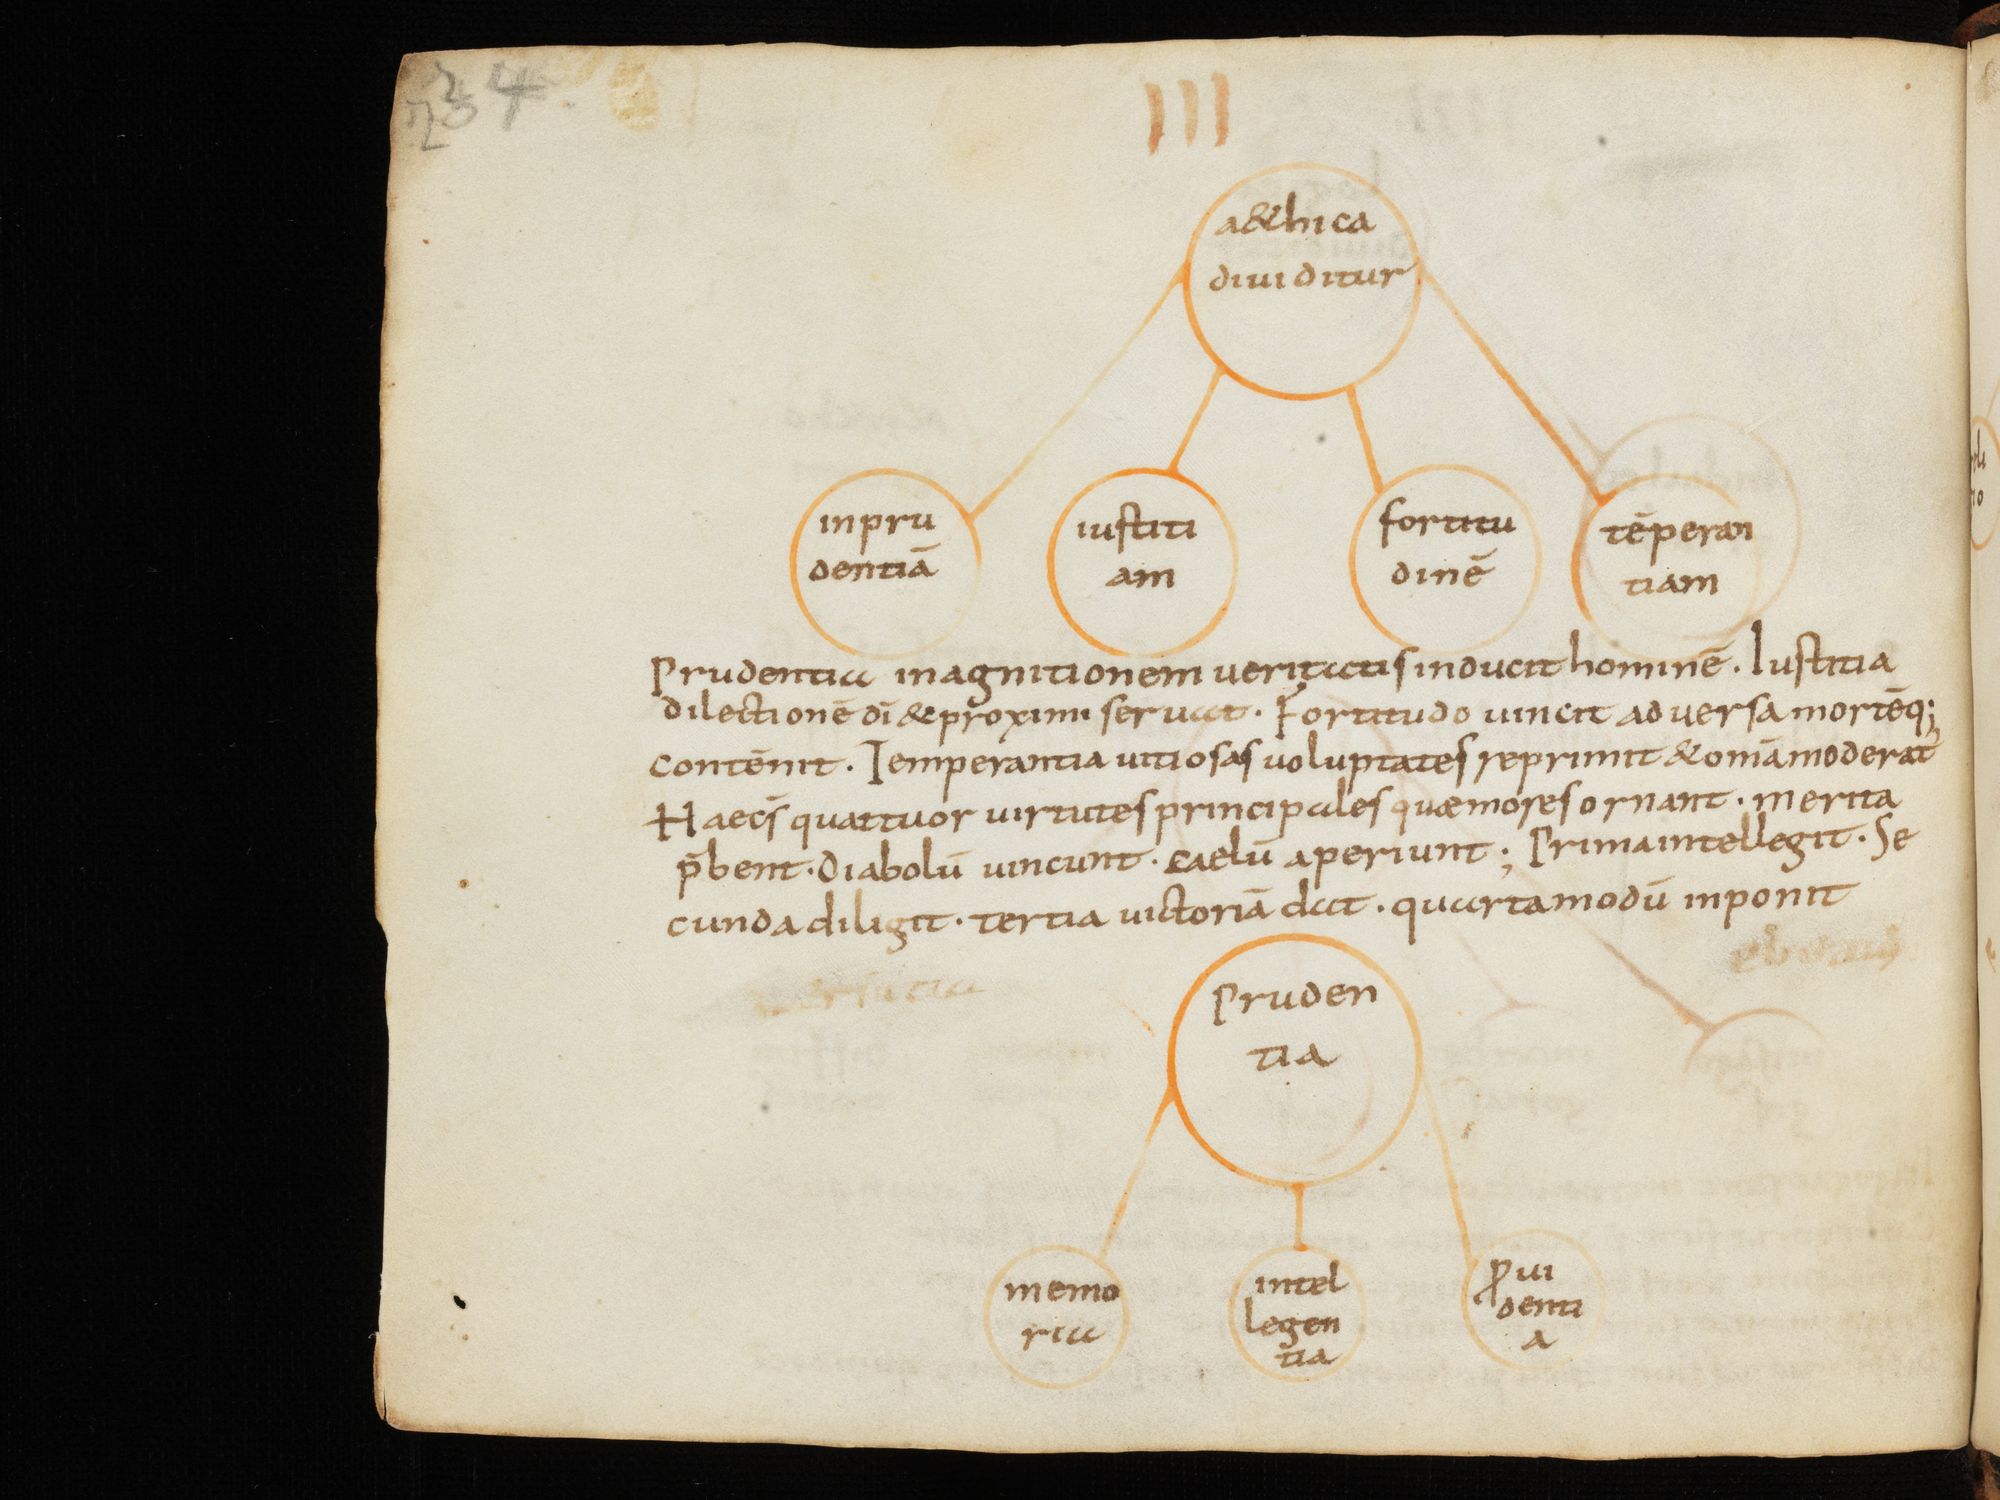 234
III
a&hica
diuiditur
inpru
dentiā
iustiti
am
fortitu
dinē
tēperan
tiam
Prudentia inagnitionem ueritatis inducit hominē. Iustitia
dilectionē dī & proximi seruat. Fortitudo uincit aduersa mortēq;
contēnit. Temperantia uitiosas uoluptates reprimit & omā moderat᷑
Haec s̄ quattuor uirtutes principales quae mores ornant. merita
p̄bent. diabolū uincunt. caelū aperiunt; Prima intellegit. Se
cunda diligit. tertia uictoriā dat. quarta modū inponit
Pruden
tia
memo
ria
intel
legen
tia
ꝓui
denti
a